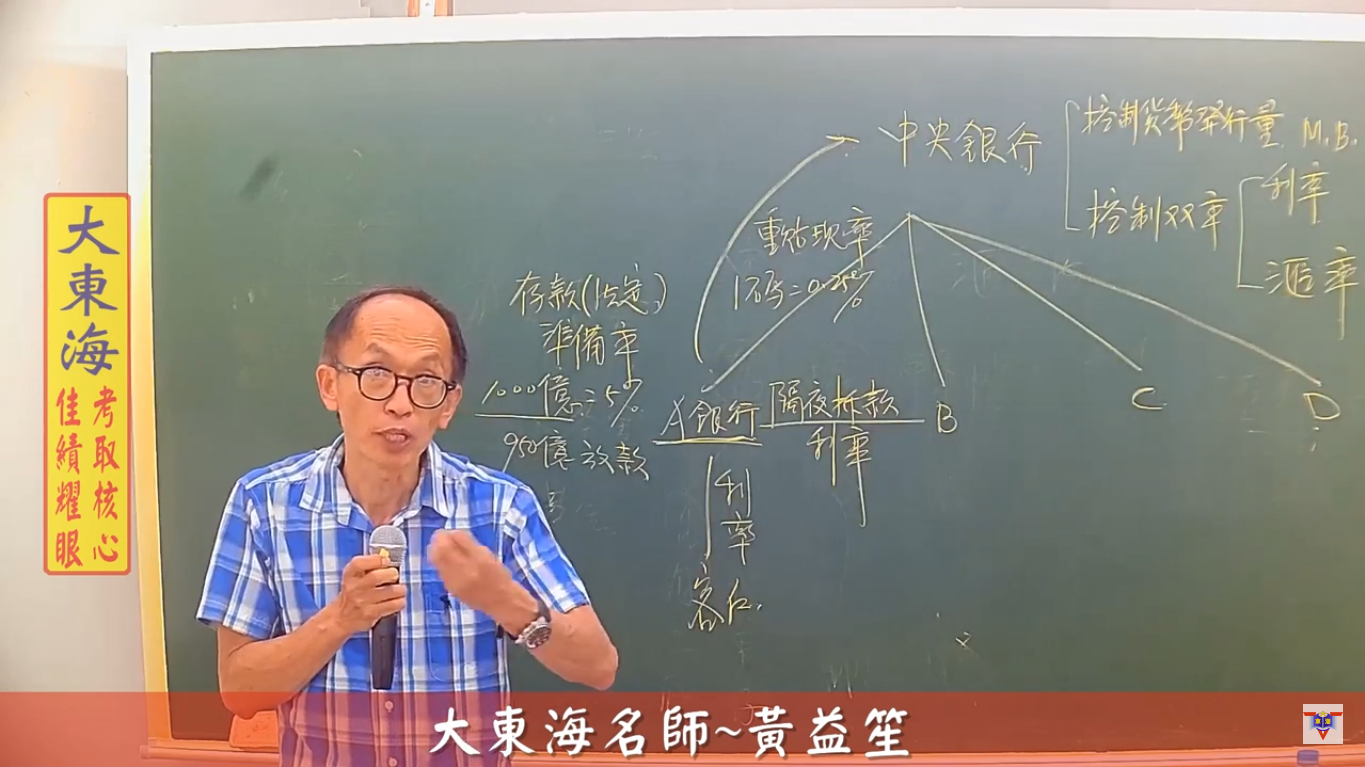 大東海
考取核心
佳績耀眼
中央銀行
控制貨幣發行量 M.B.
控制双率
利率
滙率
重貼現率
1碼=0.25%
存款(法定)
準備率
1000億=5%
950億放款
A銀行
隔夜拆款
利率
B
C
D
利率
客戶
大東海名師~黃益笙